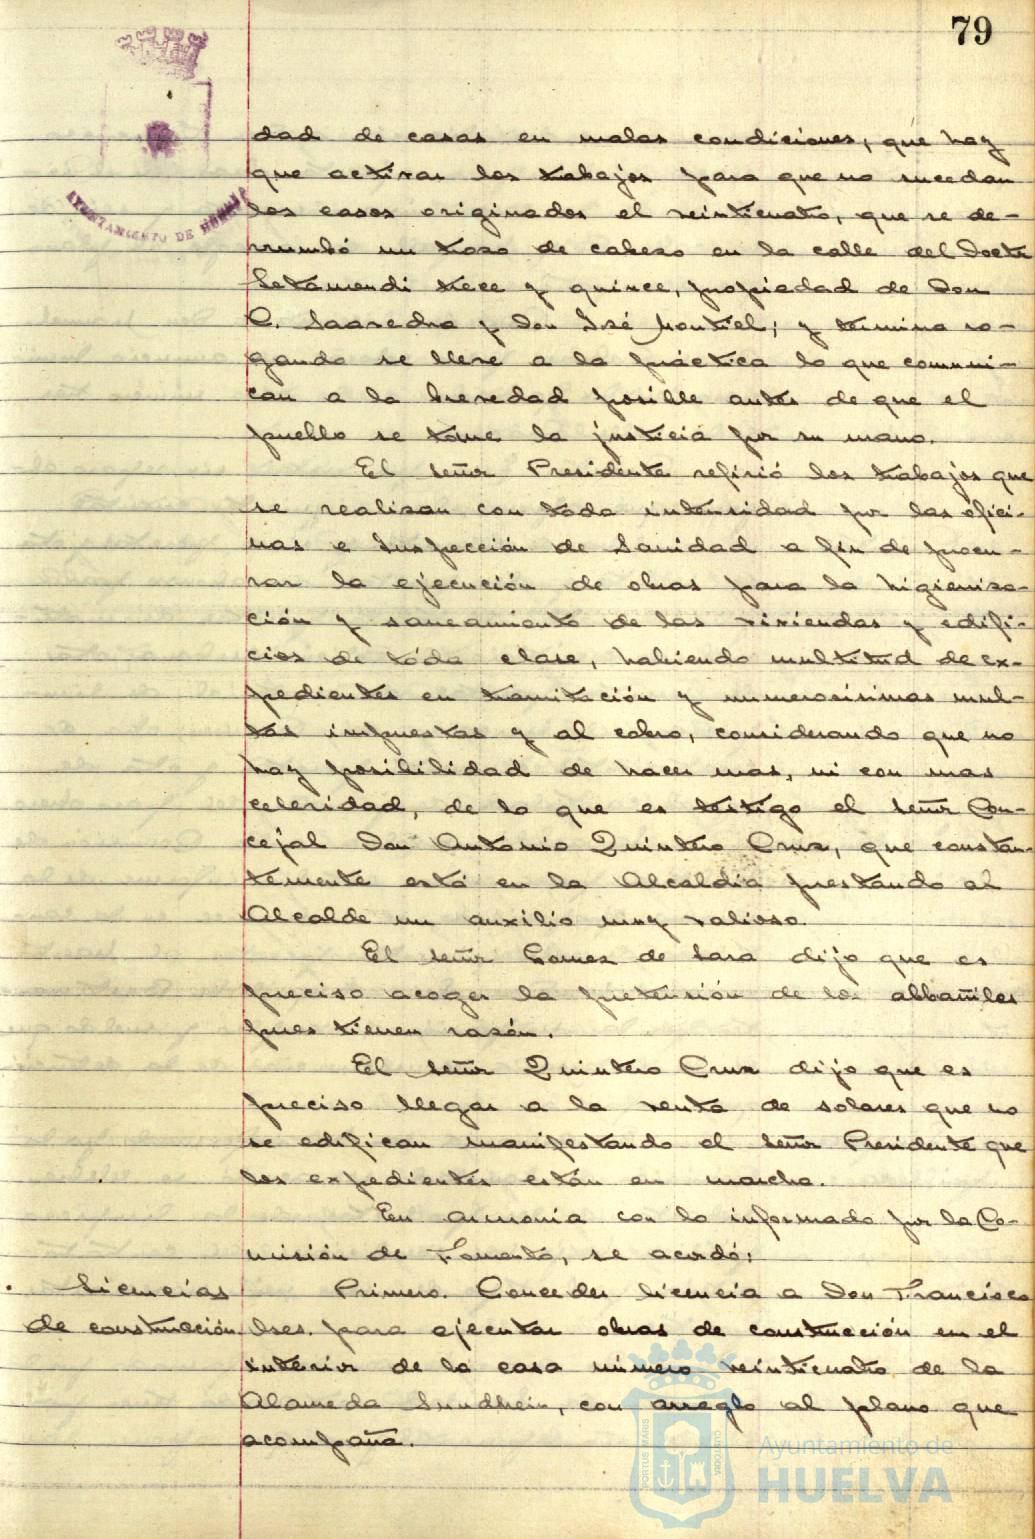 79
AYUNTAMIENTO DE HUELVA
dad de casas en malas condiciones, que hay
que activar los trabajos para que no sucedan
los casos originados el veinticuatro, que se de-
rrumbó un trozo de cabezo en la calle del Doctor
Letamendi trece y quince, propiedad de Don
C. Saavedra y Don José Montiel; y termina ro-
gando se lleve a la práctica lo que comuni-
can a la brevedad posible antes de que el
pueblo se tome la justicia por su mano.
El señor Presidente refirió los trabajos que
se realizan con toda intensidad por las ofici-
nas e Inspección de Sanidad a fin de procu-
rar la ejecución de obras para la higieniza-
ción y saneamiento de las viviendas y edifi-
cios de toda clase, habiendo multitud de ex-
pedientes en tramitación y numerosisimas mul-
tas impuestas y al cobro, considerando que no
hay posibilidad de hacer mas, ni con mas
celeridad, de lo que es testigo el señor Con-
cejal Don Antonio Quintero Cruz, que constan-
temente está en la Alcaldía prestando al
Alcalde un auxilio muy valioso.
El señor Gomez de Lara dijo que es
preciso acoger la pretensión de los albañiles
pues tienen razón.
El señor Quintero Cruz dijo que es
preciso llegar a la venta de solares que no
se edifican manifestando el señor Presidente que
los expedientes están en marcha.
En armonia con lo informado por la Co-
misión de Fomento, se acordó:
Licencias
de construcción.
Primero. Conceder licencia a Don Francisco
para ejecutar obras de construcción en el
interior de la casa número veinticuatro de la
Alameda Sundhein, con arreglo al plano que
acompaña.
PORTUS MARIS
CUSTODIA
Ayuntamiento de
HUELVA